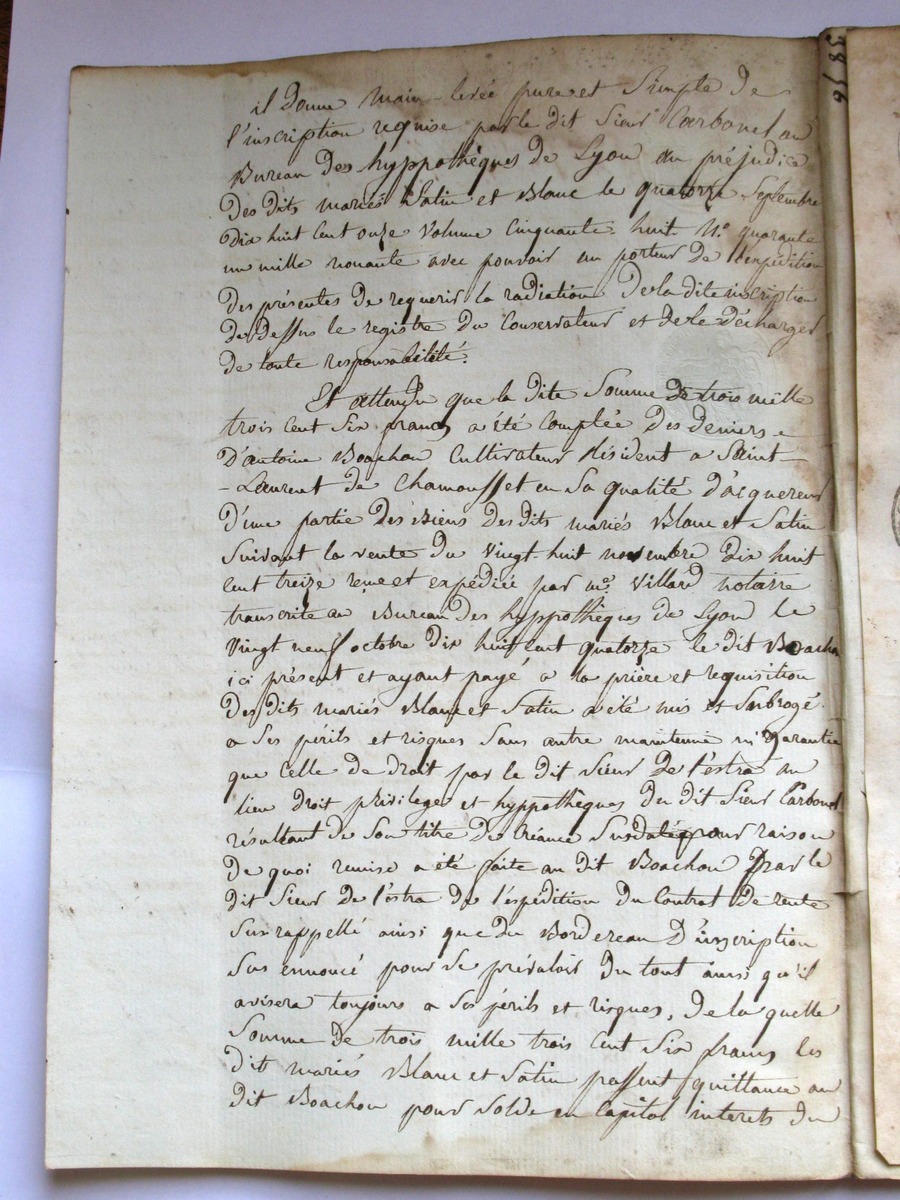 il donne main-levée pure et simple de
l'inscription requise par le dit Sieur Carbonel au
Bureau des hyppothèques de Lyon au préjudice
des dits mariés Satin et Blanc le quatorze Septembre
dix huit cent onze volume Cinquante huit N.o quarante
un mille nonante avec pouvoir au porteur de l'expédition
des présentes de requerir la radiation de la dite inscription
de dessus le registre du Conservateur et de le décharger
de toute responsabilité.
Et attendu que la dite Somme de trois mille
trois Cent Six francs a été Comptée des deniers
d'antoine Boachon Cultivateur résident a Saint
-Laurent de Chamousset en Sa qualité d'acquereur
d'une partie des Biens des dits mariés Blanc et Satin
Suivant la vente du vingt huit novembre dix huit
Cent treize reçue et expédiée par me. Villard notaire
transcrite au Bureau des hyppothèques de Lyon le
vingt neuf octobre dix huit cent quatorze le dit Boachon
ici présent et ayant payé a la prière et requisition
des dits mariés Blanc et Satin a été mis et Subrogé
a Ses périls et risques Sans autre maintenue ni garantie
que celle de droit par le dit Sieur de l'estra au
lieu droit privileges et hyppothèques du dit Sieur Carbonel
résultant de Son titre de Créance Susdaté pour raison
de quoi remise a été faite au dit Boachon par le
dit Sieur de l'estra de l'expédition du Contrat de rente
Sus rappellé ainsi que du Bordereau d'inscription
Sus énnoncé pour Se prévaloir du tout ainsi qu'il
avisera toujours a Ses périls et risques, de la quelle
Somme de trois mille trois Cent Six francs les
dits mariés Blanc et Satin passent quittance au
dit Boachon pour Solde en Capital interets du
3876